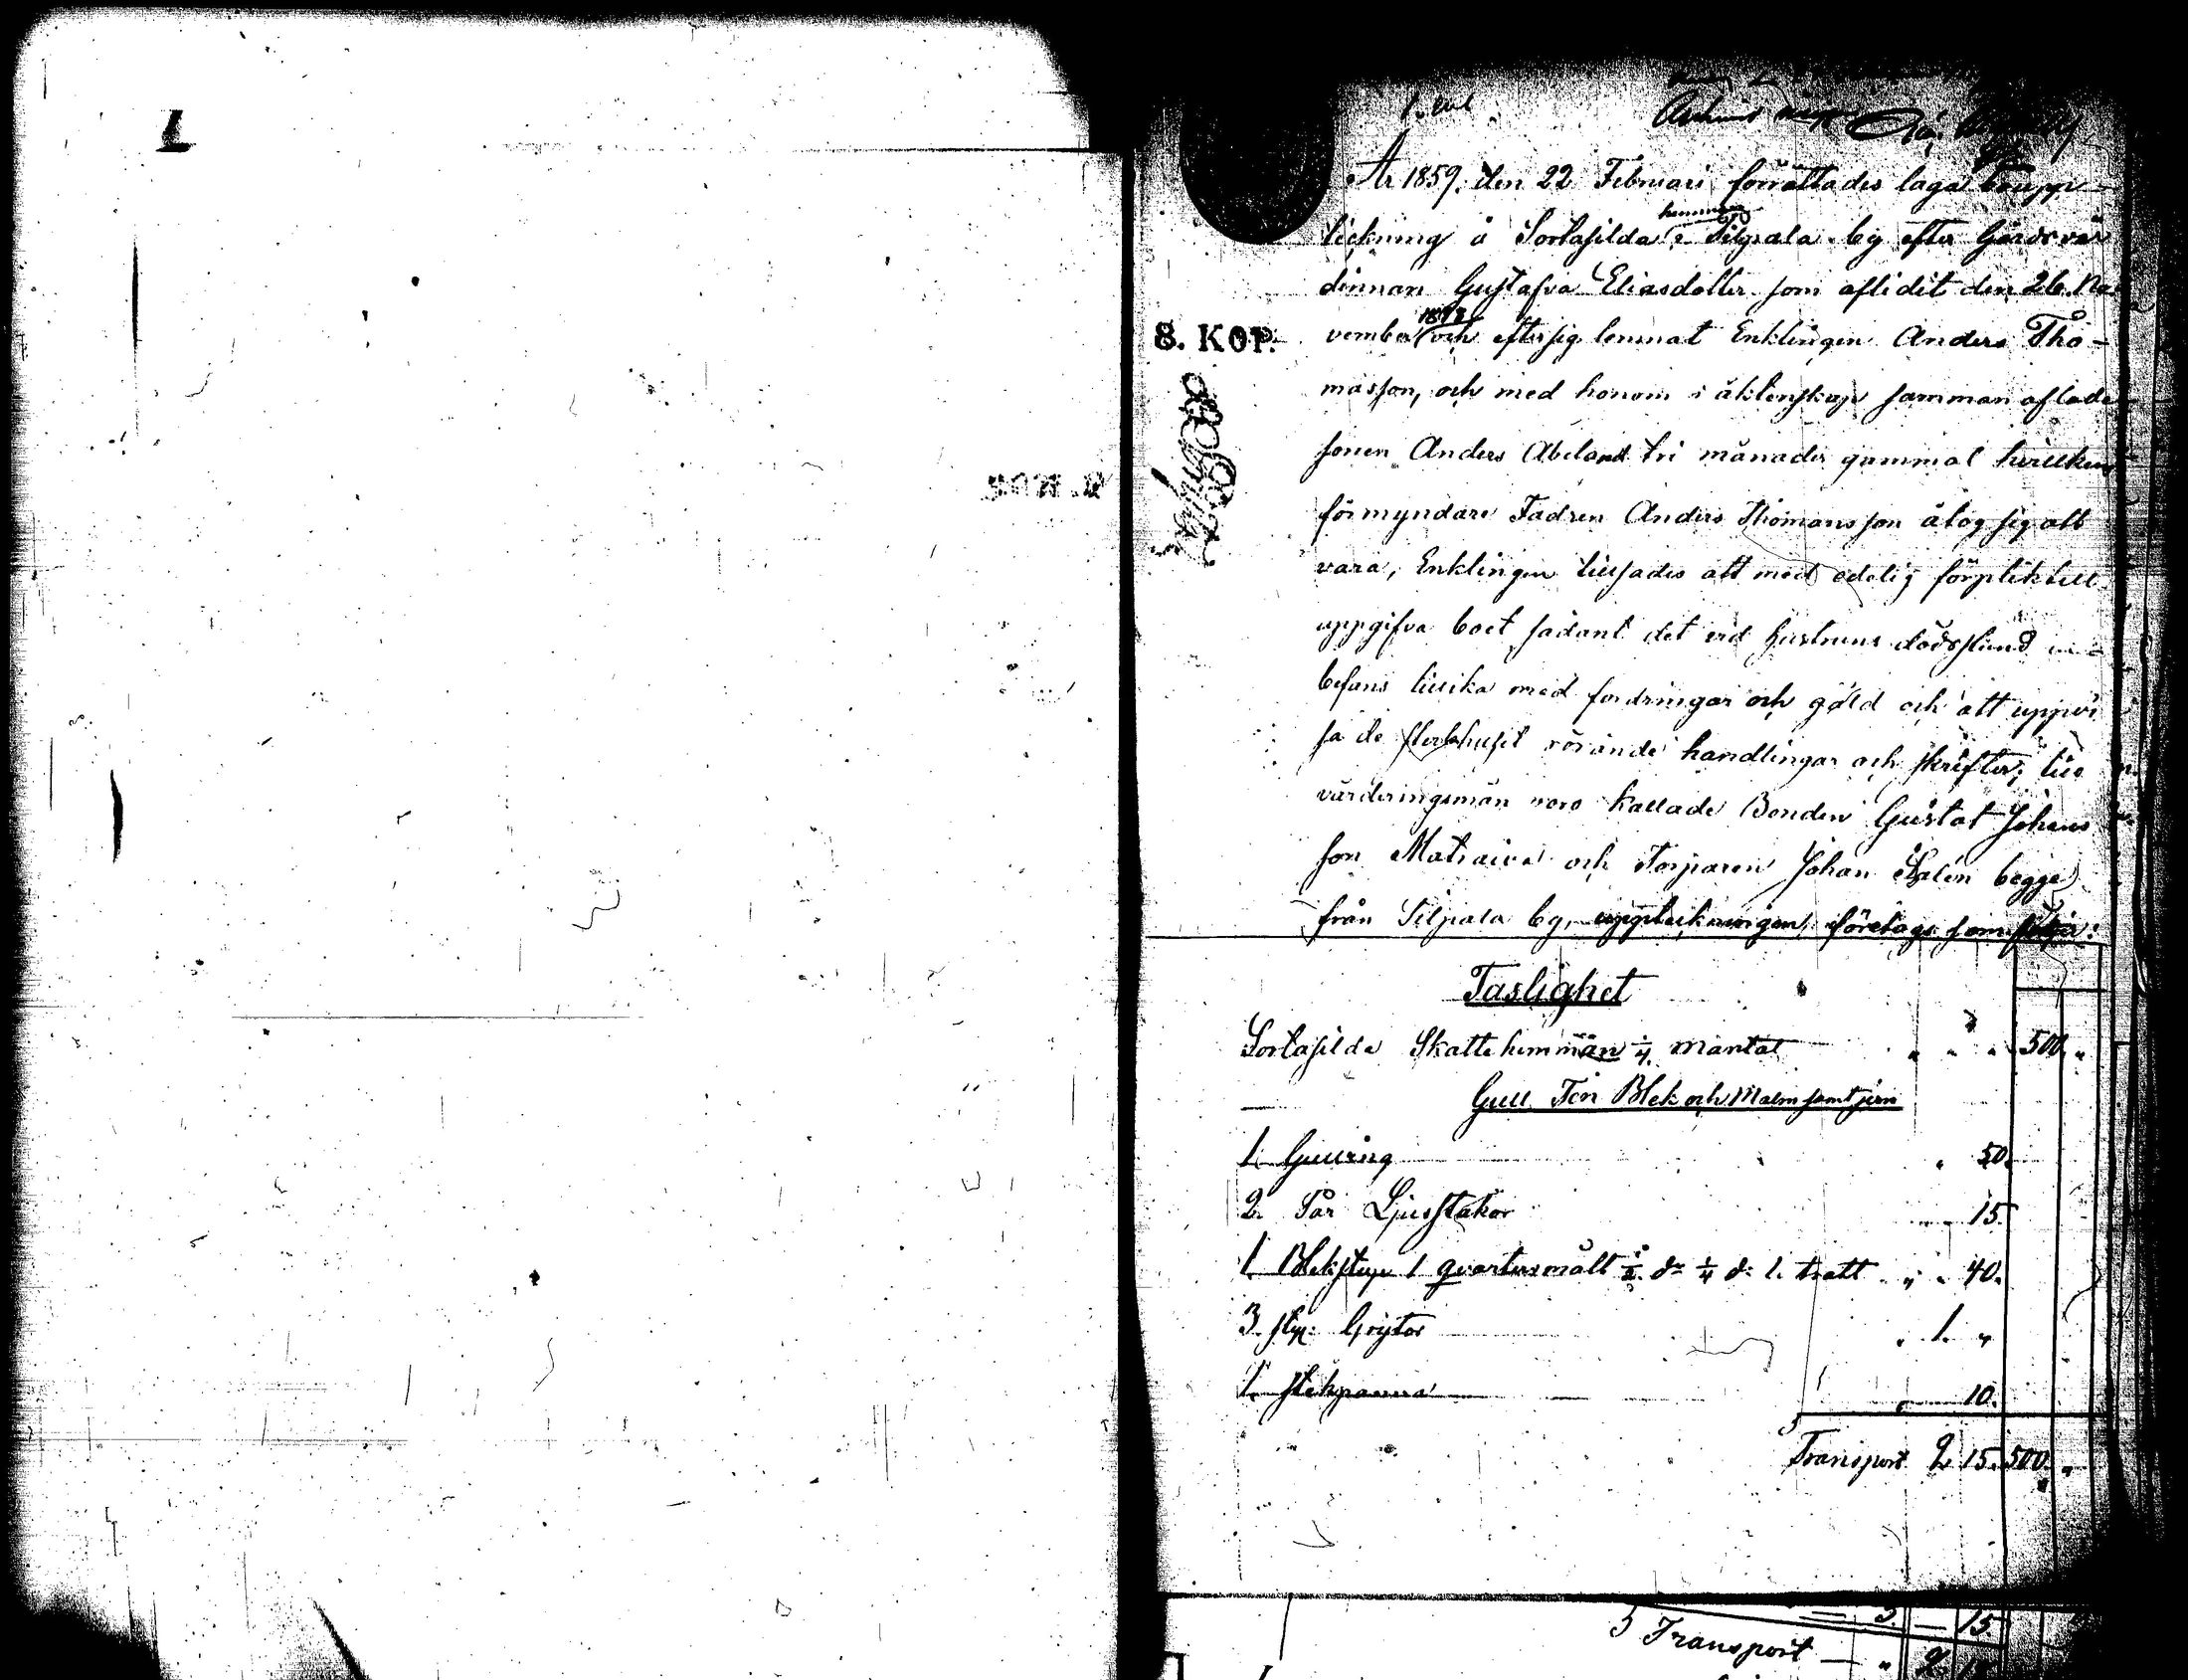 År 1859. den 22 Februari förrättades laga boupp-
teckning å Sortasilda hemman i Silpala by efter Gårdsvär
dinnan Gustafva Eliasdotter som aflidit den 26. No
8. KOP. vember 1858 och efter sig lemnat Enklingen Anders Tho-
masson, och med honom i äktenskap samman aflade
sonen Anders Abel tri månader gammal hvilkens
förmyndare Fadren Anders Thomansson åtog sig att
vara, Enklingen tillsades att med edelig förpliktelse
uppgifva boet sådant det vid hustruns dödsstund
befans lillika med fordringar och gäld och att uppvi
sa de sterbhuset rörande handlingar och skrifter; till
värderingsmän voro kallade Bonden Gustaf Johans
son Matsaiva och Torparen Johan Stalen begge
från Silpala by, uppteckningen företogs som följer:
Fastighet
Sortasilda Skatte hemman 1/4 mantal " " " 500 "
Gull Ten Blek och Malm samt jern
1. Gullring " 50.
2. Par Ljusstakar " 15.
1. Blekstop 1 qvartersmått 1/2 do 1/4 do 1. tratt " " 40.
3. st: Grytor " 1. "
1. stekpanna " 10.
Transport 2 15. 500. "
3. 15
Transport " 2